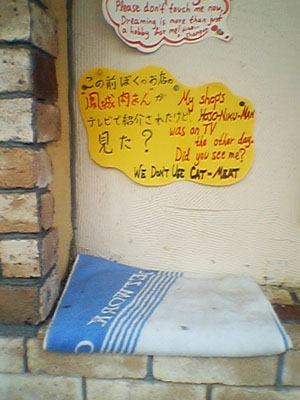 Please don't touch me now,
Dreaming is more than just
a hobby for me!
この前ぼくのお店の
鳳城肉まんが
テレビで紹介されたけど、
見た？
My shops
HOJO-NIKU-MAN
was on TV
the other day.
Did you see me?
WE DON'T USE CAT-MEAT